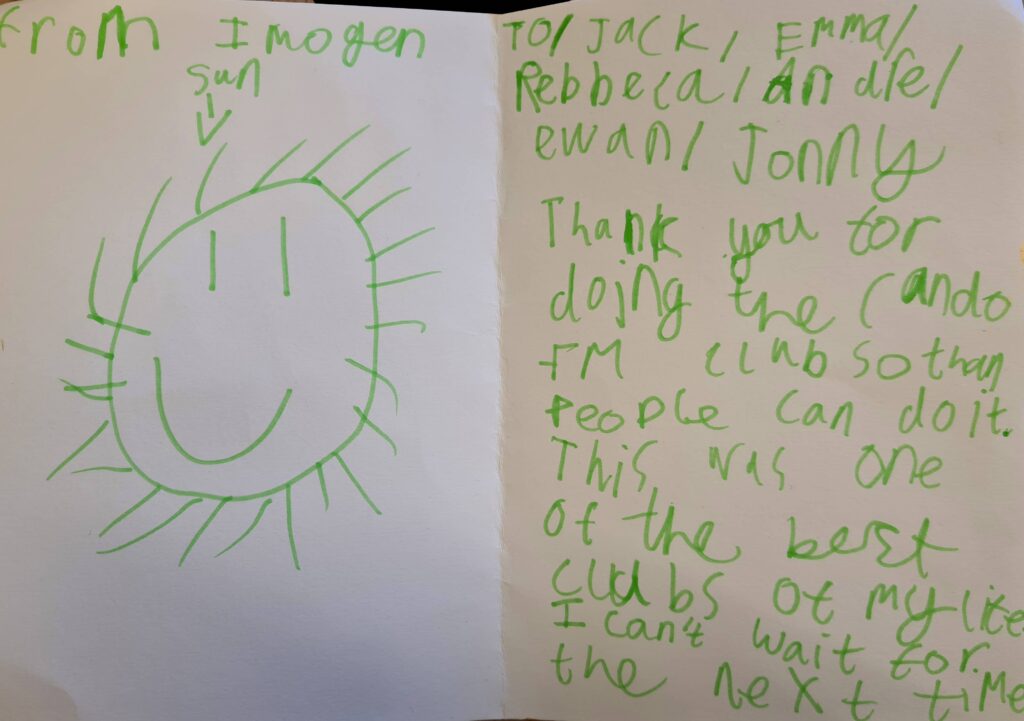 From Imogen
sun
TO/ Jack, Emma/
Rebbeca/ Andre/
ewan/ Jonny
Thank you for
doing the Cando
FM club so than
people can do it.
This was one
of the best
clubs of my life
I can't wait for.
the next time